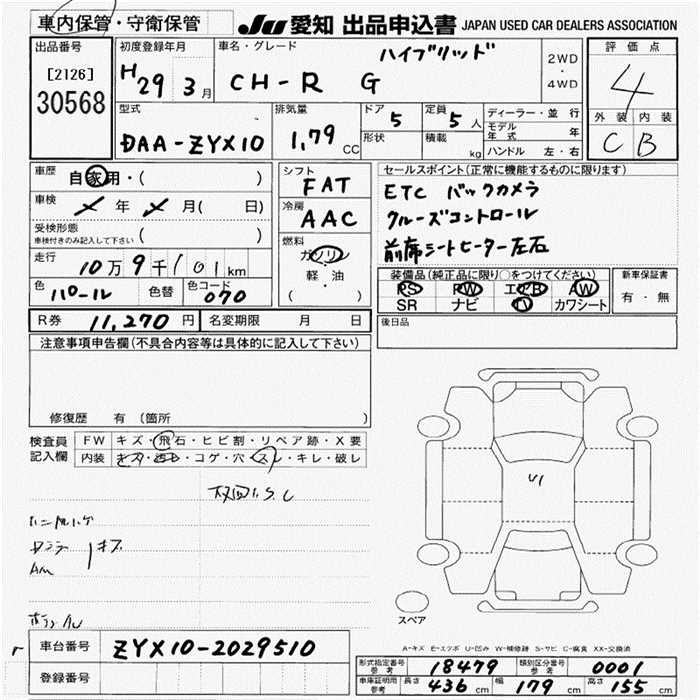 車内保管・守衛保管
JU 愛知 出品申込書 JAPAN USED CAR DEALERS ASSOCIATION
出品番号
[2126]
30568
初度登録年月
H29 3月
車名・グレード
ハイブリッド
CH-R G
2WD・4WD
評価点
4
外装 内装
C B
型式
DAA-ZYX10
排気量
1.79 CC
ドア 5
定員 5人
形状
積載 kg
ディーラー・並行
モデル年式 年
ハンドル 左・右
車歴 自家用・( )
車検 年 月( 日)
受検形態
車検付きのみ記入して下さい ( )
走行
10万9千101km
色 パール 色替 色コード 070
シフト
FAT
冷房
AAC
燃料
ガソリン
軽・油
( )
セールスポイント(正常に機能するものに限ります)
ETC バックカメラ
クルーズコントロール
前席シートヒーター左右
装備品(純正品に限り○をつけてください)
PS PW エアB AW
SR ナビ TV カワシート
新車保証書
有・無
R券 11,270円 名変期限 月 日
後日品
注意事項申告欄(不具合内容等は具体的に記入して下さい)
修復歴 有(箇所 )
検査員記入欄
FW キズ・飛石・ヒビ割・リペア跡・X要
内装 キズ・汚レ・コゲ・穴・スレ・キレ・破レ
U1
スペア
A-キズ E-エクボ U-凹み W-補修跡 S-サビ C-腐食 XX-交換済
車台番号 ZYX10-2029510
登録番号
形式指定番号 参考 18479 類別区分番号 参考 0001
車庫証明用 参考 長さ 436cm 幅 179cm 高さ 155cm